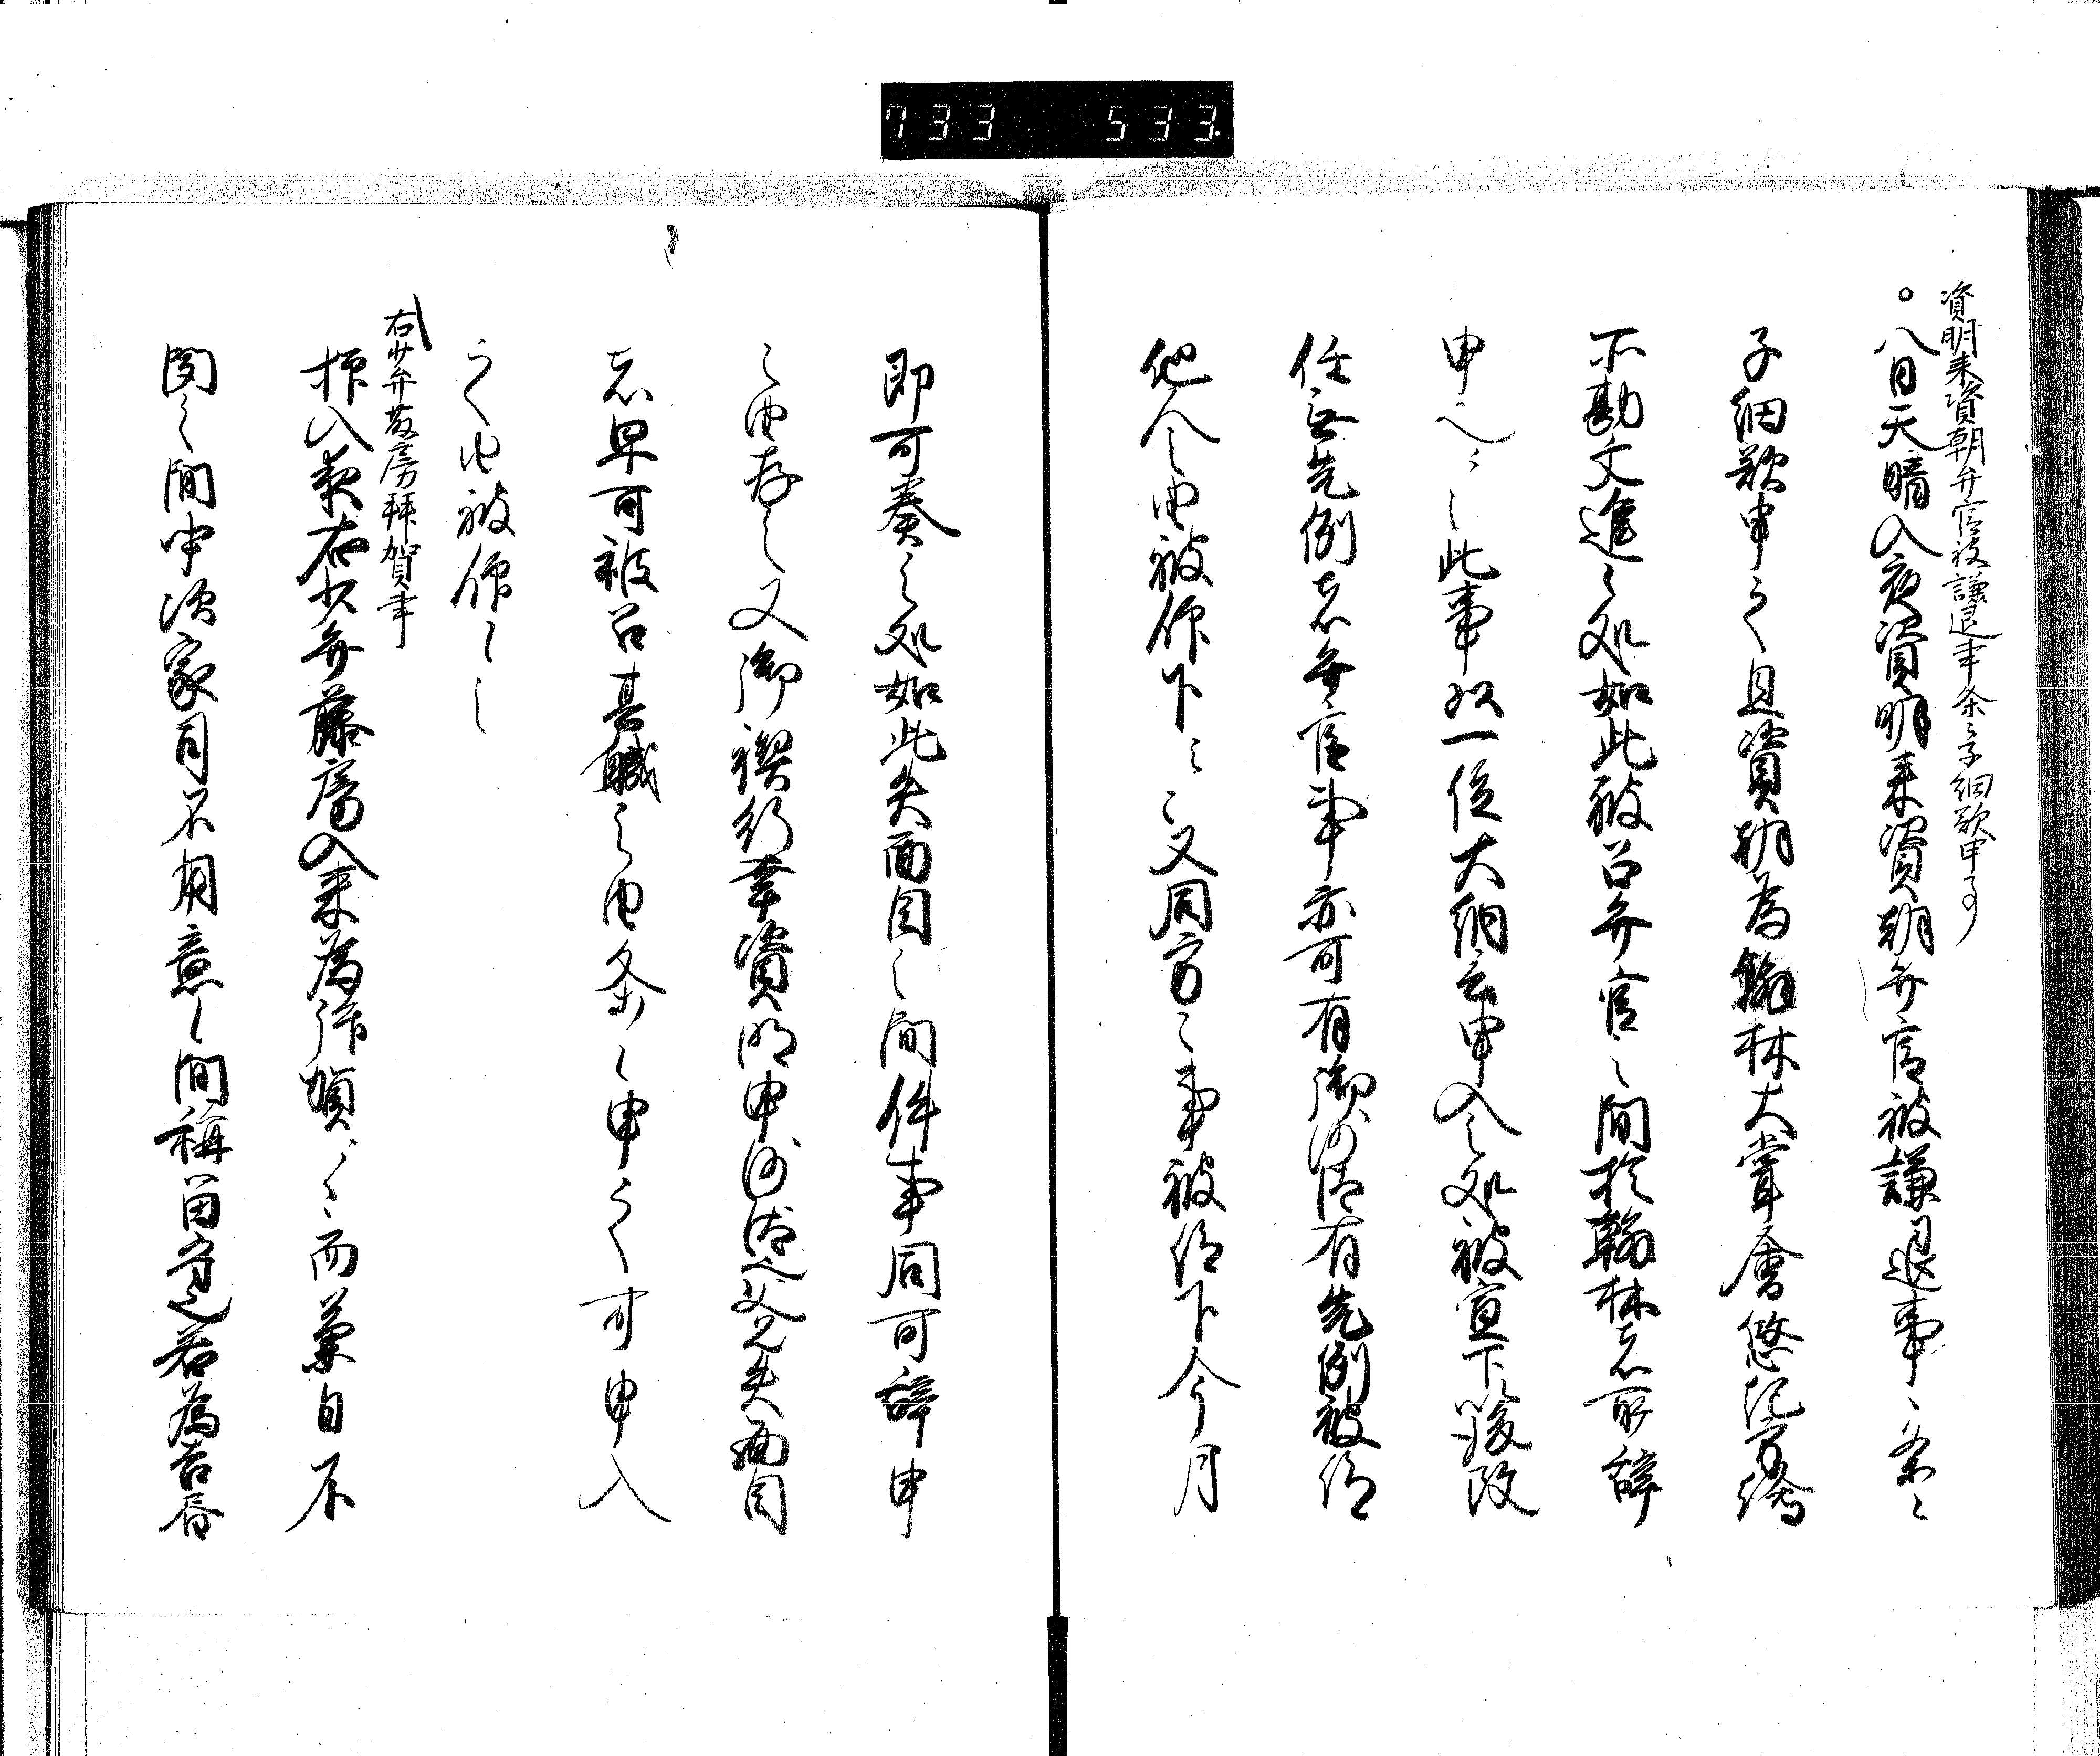 733 533.
資明来資朝弁官被謙退事条々子細歎申事
○八日天晴入夜資明来資朝弁官被謙退事条々
子細歎申之且資朝為翰林大嘗会悠紀方
不勘文進之処如此被召弁官之間於翰林者可辞
申云々此事以一位大納言申入之処被宣下後改
任無先例者弁官事亦可有御沙汰有先例被仰
他人之由被仰下云々又同方之事被仰下今月
即可奏之処如此失面目之間件事同可辞申
之由存之又御禊行幸資明申沙汰父兄失面目
者早可被召其職之由条々申之可申入
之由被仰之
右少弁藤房拝賀事
抑入夜右少弁藤房入来為拝賀云々而兼日不
聞之間申次家司不用意之間称留守之若為吉